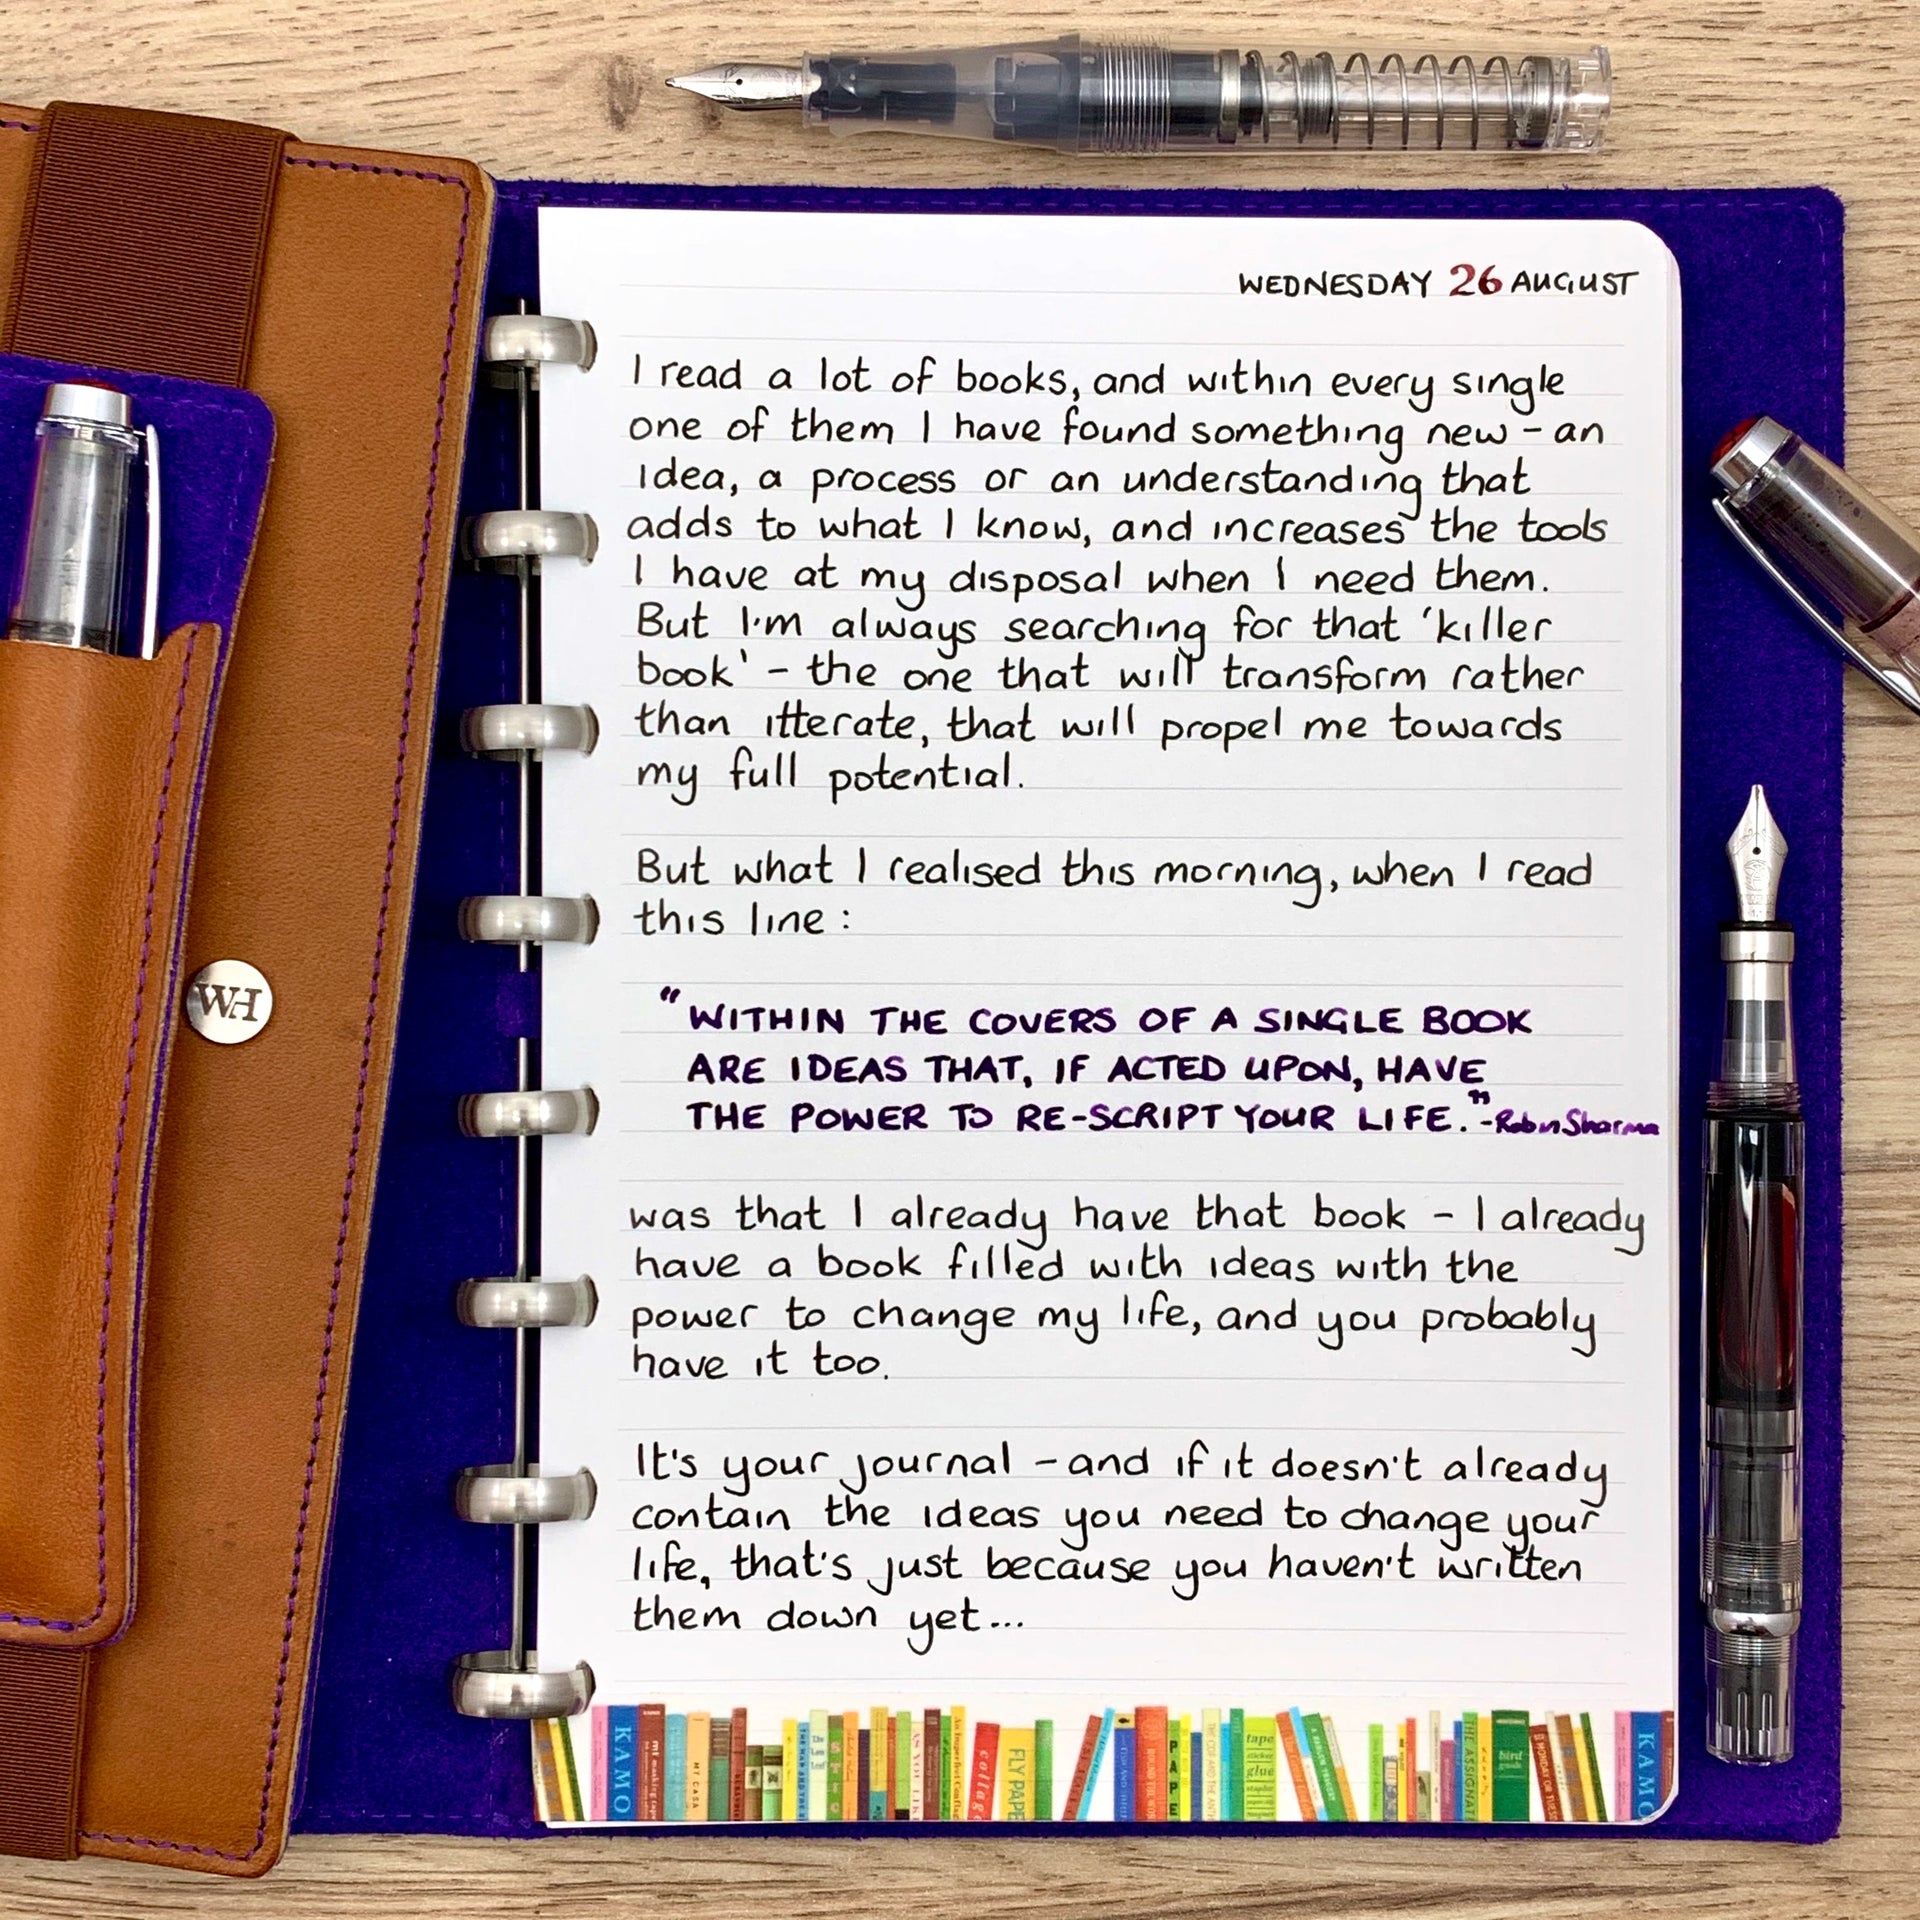 WEDNESDAY 26 AUGUST
I read a lot of books, and within every single
one of them I have found something new - an
idea, a process or an understanding that
adds to what I know, and increases the tools
I have at my disposal when I need them.
But I'm always searching for that 'killer
book' - the one that will transform rather
than itterate, that will propel me towards
my full potential.
But what I realised this morning, when I read
this line:
"WITHIN THE COVERS OF A SINGLE BOOK
ARE IDEAS THAT, IF ACTED UPON, HAVE
THE POWER TO RE-SCRIPT YOUR LIFE." - Robin Sharma
was that I already have that book - I already
have a book filled with ideas with the
power to change my life, and you probably
have it too.
It's your journal - and if it doesn't already
contain the ideas you need to change your
life, that's just because you haven't written
them down yet...
WH
KAMO
mt making tape
MY CASA
AS YOU LIKE
collage
FLY PAPE
PAPE
tape
glue
THE ASSIGNAT
bird
guide
KAMO